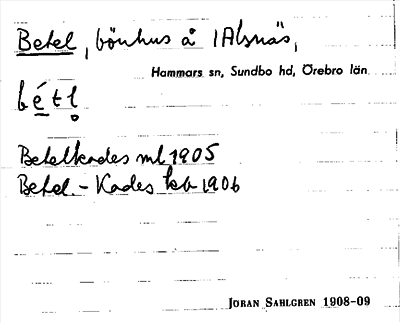 Betel, bönhus å 1 Alsnäs,
Hammars sn, Sundbo hd, Örebro län
bétl̥
Betelkades ml 1905
Betel. - Kades kb 1906
JÖRAN SAHLGREN 1908-09